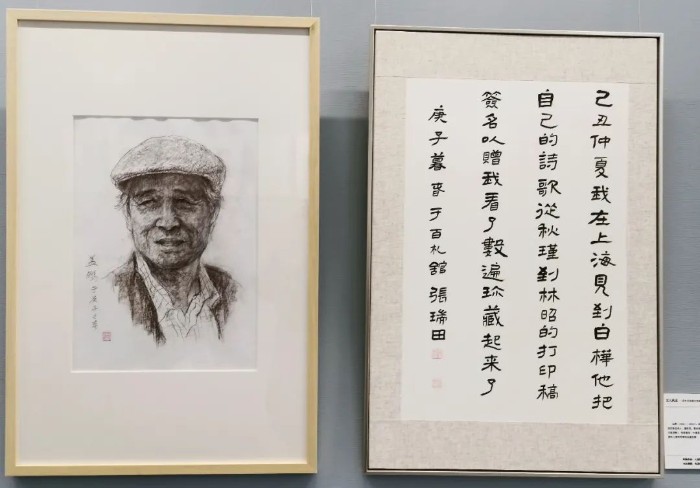 己丑仲夏我在上海見到白樺他把
自己的詩歌從秋瑾到林昭的打印稿
簽名以贈我看了數遍珍藏起來了
庚子暮春于百札館張瑞田